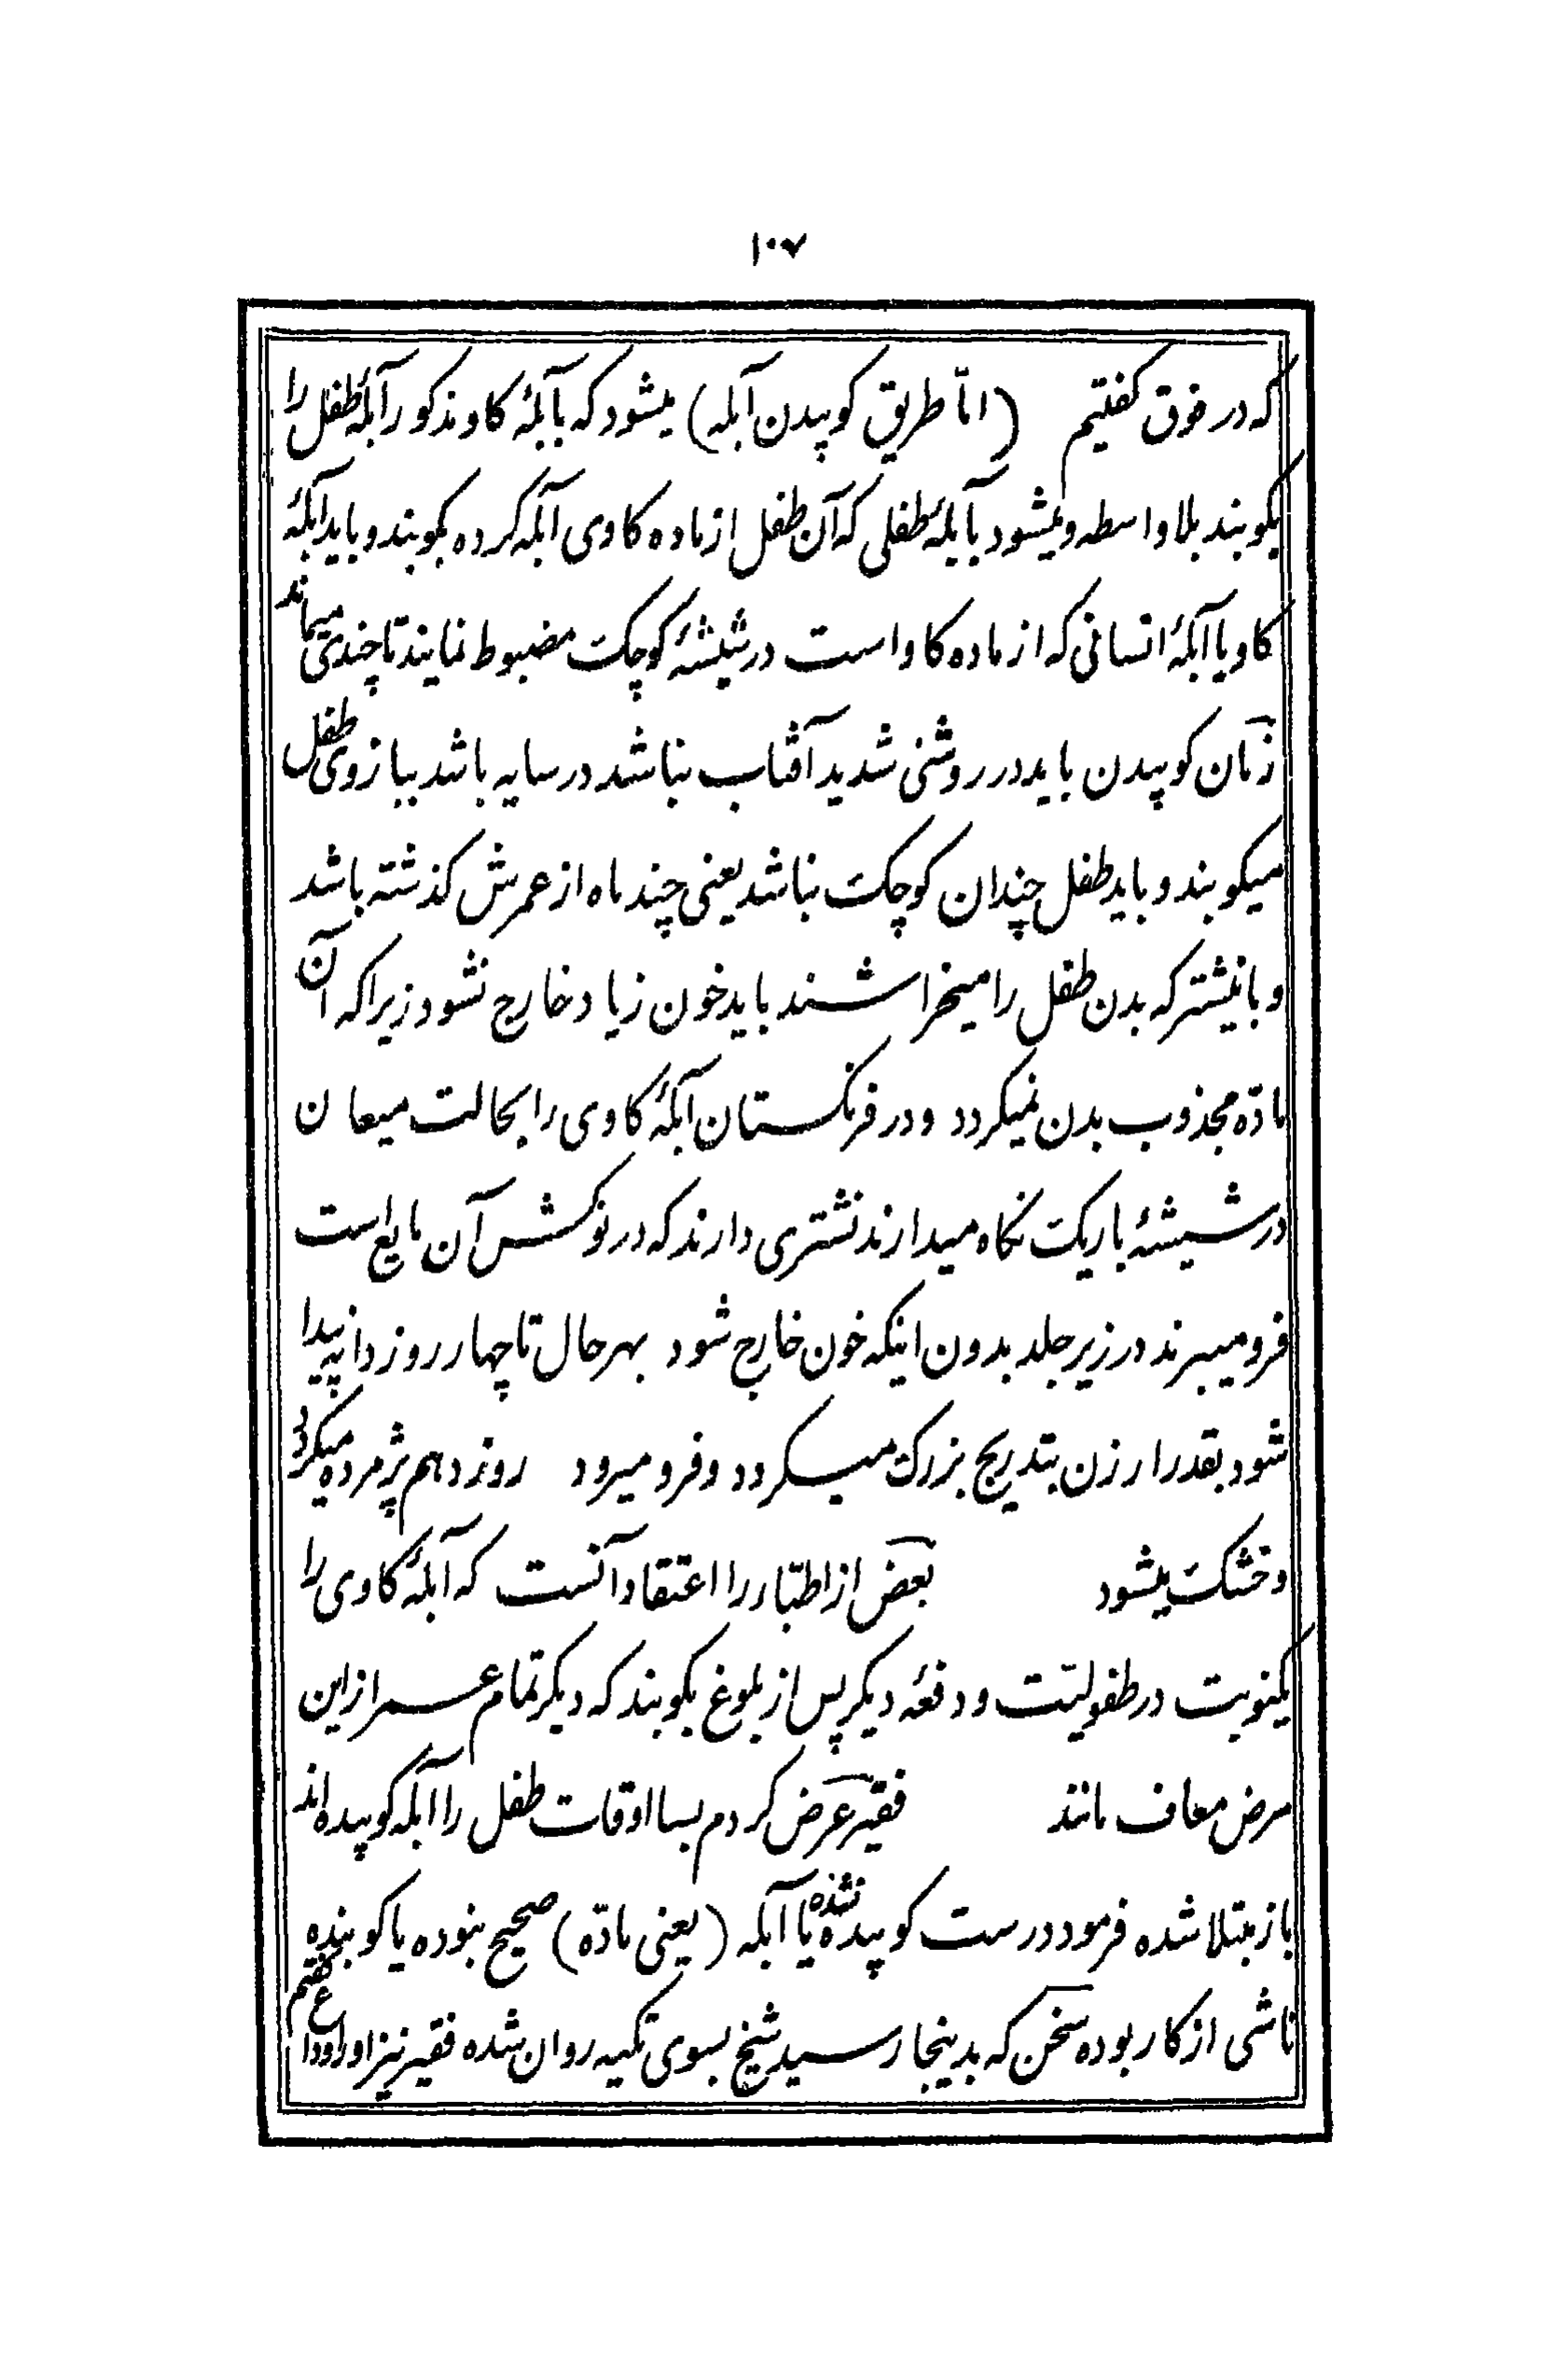 ۱۰۷
که در فوق کفتیم (امّا طریق کوپیدن آبله) میشود که باآبلهٔ کاو مذکور آبلهٔ طفل را
بکوبند بلا واسطه و میشود باآبلهٔ طفلی که آن طفل از ماده کاوی آبله کرده بکوبند و باید آبلهٔ
کاو یا آبلهٔ انسانی که از ماده کاو است در شیشهٔ کوچک مضبوط نمایند تا چندی میماند
زمان کوپیدن باید در روشنی شدید آفتاب نباشد در سایه باشد ببازوی طفل
میکوبند و باید طفل چندان کوچک نباشد یعنی چند ماه از عمرش کذشته باشد
و بانیشتر که بدن طفل را میخراشند باید خون زیاد خارج نشود زیرا که آن
مادّه مجذوب بدن نمیکردد و در فرنکستان آبلهٔ کاوی را بحالت میعان
در شیشهٔ باریک نکاه میدارند نشتری دارند که در نوکش آن مایع است
فرو میبرند در زیر جلد بدون اینکه خون خارج شود بهر حال تا چهار روز دانه پیدا
شود بقدر ارزن بتدریج بزرک میکردد و فرو میرود روز دهم پژمرده میکردد
و خشک میشود بعض از اطبّاء را اعتقاد آنست که آبلهٔ کاوی را
یکنوبت در طفولیّت و دفعهٔ دیکر پس از بلوغ بکوبند که دیکر تمام عمر از این
مرض معاف مانند فقیر عرض کردم بسا اوقات طفل را آبله کوپیده اند
باز مبتلا شده فرمود درست کوپیده نشده یا آبله (یعنی مادّه) صحیح نبوده یا کوبنده
ناشی از کار بوده سخن که بدینجا رسید شیخ بسوی تکیه روان شده فقیر نیز او را وداع کفتم